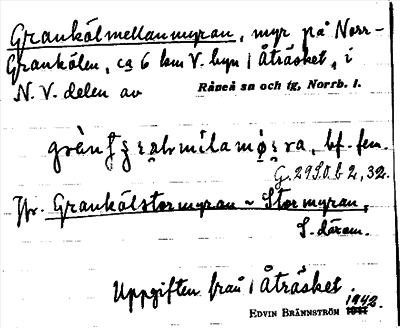 Grankölmellanmyran, myr på Norr-
Grankölen, ca 6 km V. byn i Åträsket, i
N.V. delen av Råneå sn och tg, Norrb. l.
bf. fem.
G. 2950 b 2, 32.
Jfr. Grankölstormyran ~ Stormyran,
S. därom.
Uppgiften från i Åträsket.
EDVIN BRÄNNSTRÖM 1942.